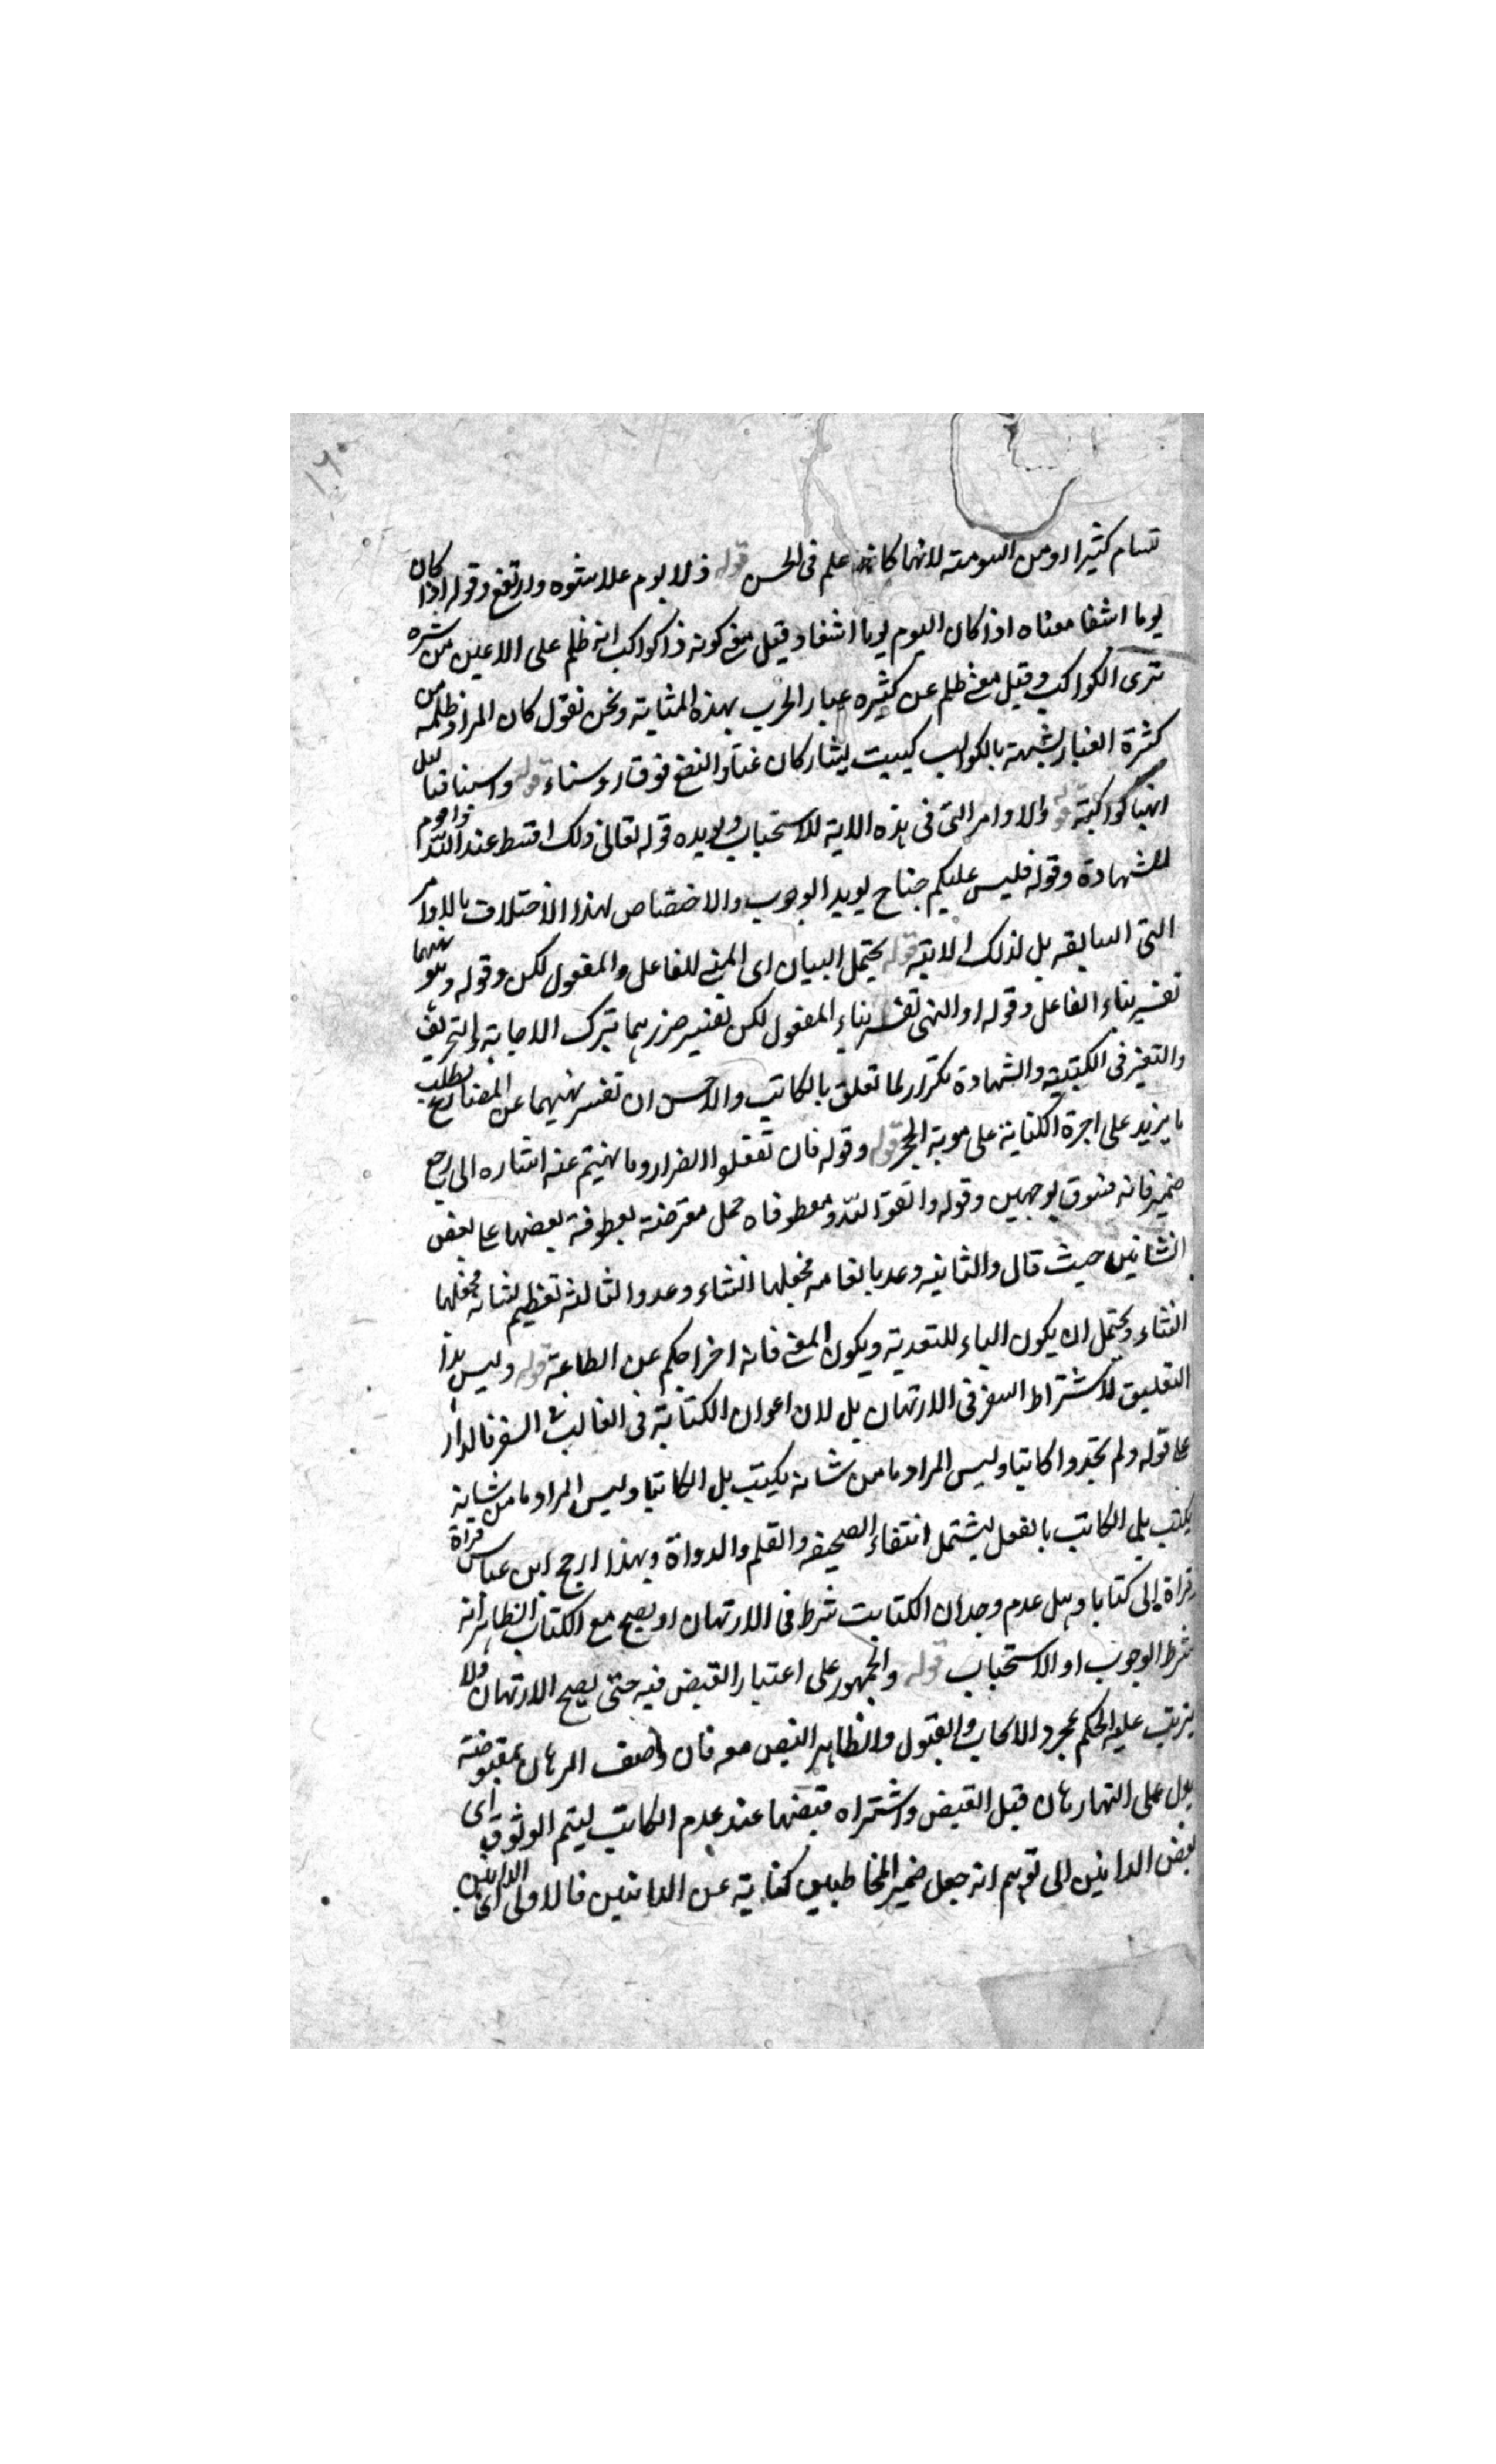 ١٦٠
تسام كثيرا او من السومة لانها كانه علم في الحسن قوله ذلا يوم علا شوه وارتفع وقوله اذا كان
يوما اشفا معناه اذا كان اليوم يوما اشفا وقيل معنى كونه ذا كواكب انه ظلم على الاعين من شره
ترى الكواكب وقيل معنى ظلم عن كثيره عبار الحرب بهذه المثابة ونحن نقول كان المراد ظلمه من
كثرة الغبار لشبهته بالكواكب كبيت يشار كان والنقع فوق روسنا قوله واسيافنا ليل
كواكبه قوله والاوامر التي في هذه الاية للاستحباب ويويده قوله تعالى ذلك اقسط عند الله واقوم
للشهادة وقوله فليس عليكم جناح يويد الوجوب والاختصاص لهذا الاختلاف بالاوامر
التي السابقه بل لذلك الاية قوله يحتمل البيان اى المبنى للفاعل والمفعول لكن وقوله وهو نهيهما
تفسير بناء الفاعل وقوله او النهى تفسير بناء المفعول لكن تفسير ضررهما بترك الاجابة والتحريف
والتغير في الكتبة والشهادة تكرار لما تعلق بالكاتب والاحسن ان تفسر نهيهما عن المضار بطلب
ما يزيد على اجرة الكتابة على موبة الجر قوله وقوله فان تفعلوا الضرار وما نهيتم عنه اشاره الى رجع
ضمير فانه فسوق بوجهين وقوله واتقوا الله ومعطوفاه جمل معترضة بعطوفة بعضها على بعض
الشانين حيث قال والثانيه وعد بانعامه فجعلها انشاء وعد والثالثه تعظيم لشانه فجعلها
انشاء ويحتمل ان يكون الباء للتعدية ويكون المعنى فانه اخراجكم عن الطاعة قوله وليس هذا
التعليق لاشتراط السفر في الارتهان بل لان اعوان الكتابة في الغالب في السفر فالمدار
على قوله ولم تجدوا كاتبا وليس المراد ما من شانه يكتب بل الكاتبا وليس المراد ما من شانه
يكتب بل الكاتب بالفعل ليشتمل انتفاء الصحيفه والقلم والدواة وبهذا ارجح ابن عباس قراة
قراة ابى كتابا وهل عدم وجدان الكتابت شرط في الارتهان او يصح مع الكتاب الظاهر انه
شرط الوجوب او الاستحباب قوله والجمهور على اعتبار القبض فيه حتى يصح الارتهان ولا
يترتب عليه الحكم بمجرد الايجاب والقبول والظاهر النص معه فان وصف الرهان بمقبوضة
يدل على انها رهان قبل القبض واشتراه قبضها عند عدم الكاتب ليتم الوثوق اى
بعض الداينين الى توهم انه جعل ضمير المخاطبين كناية عن الداينين فالاولى اى الداينين